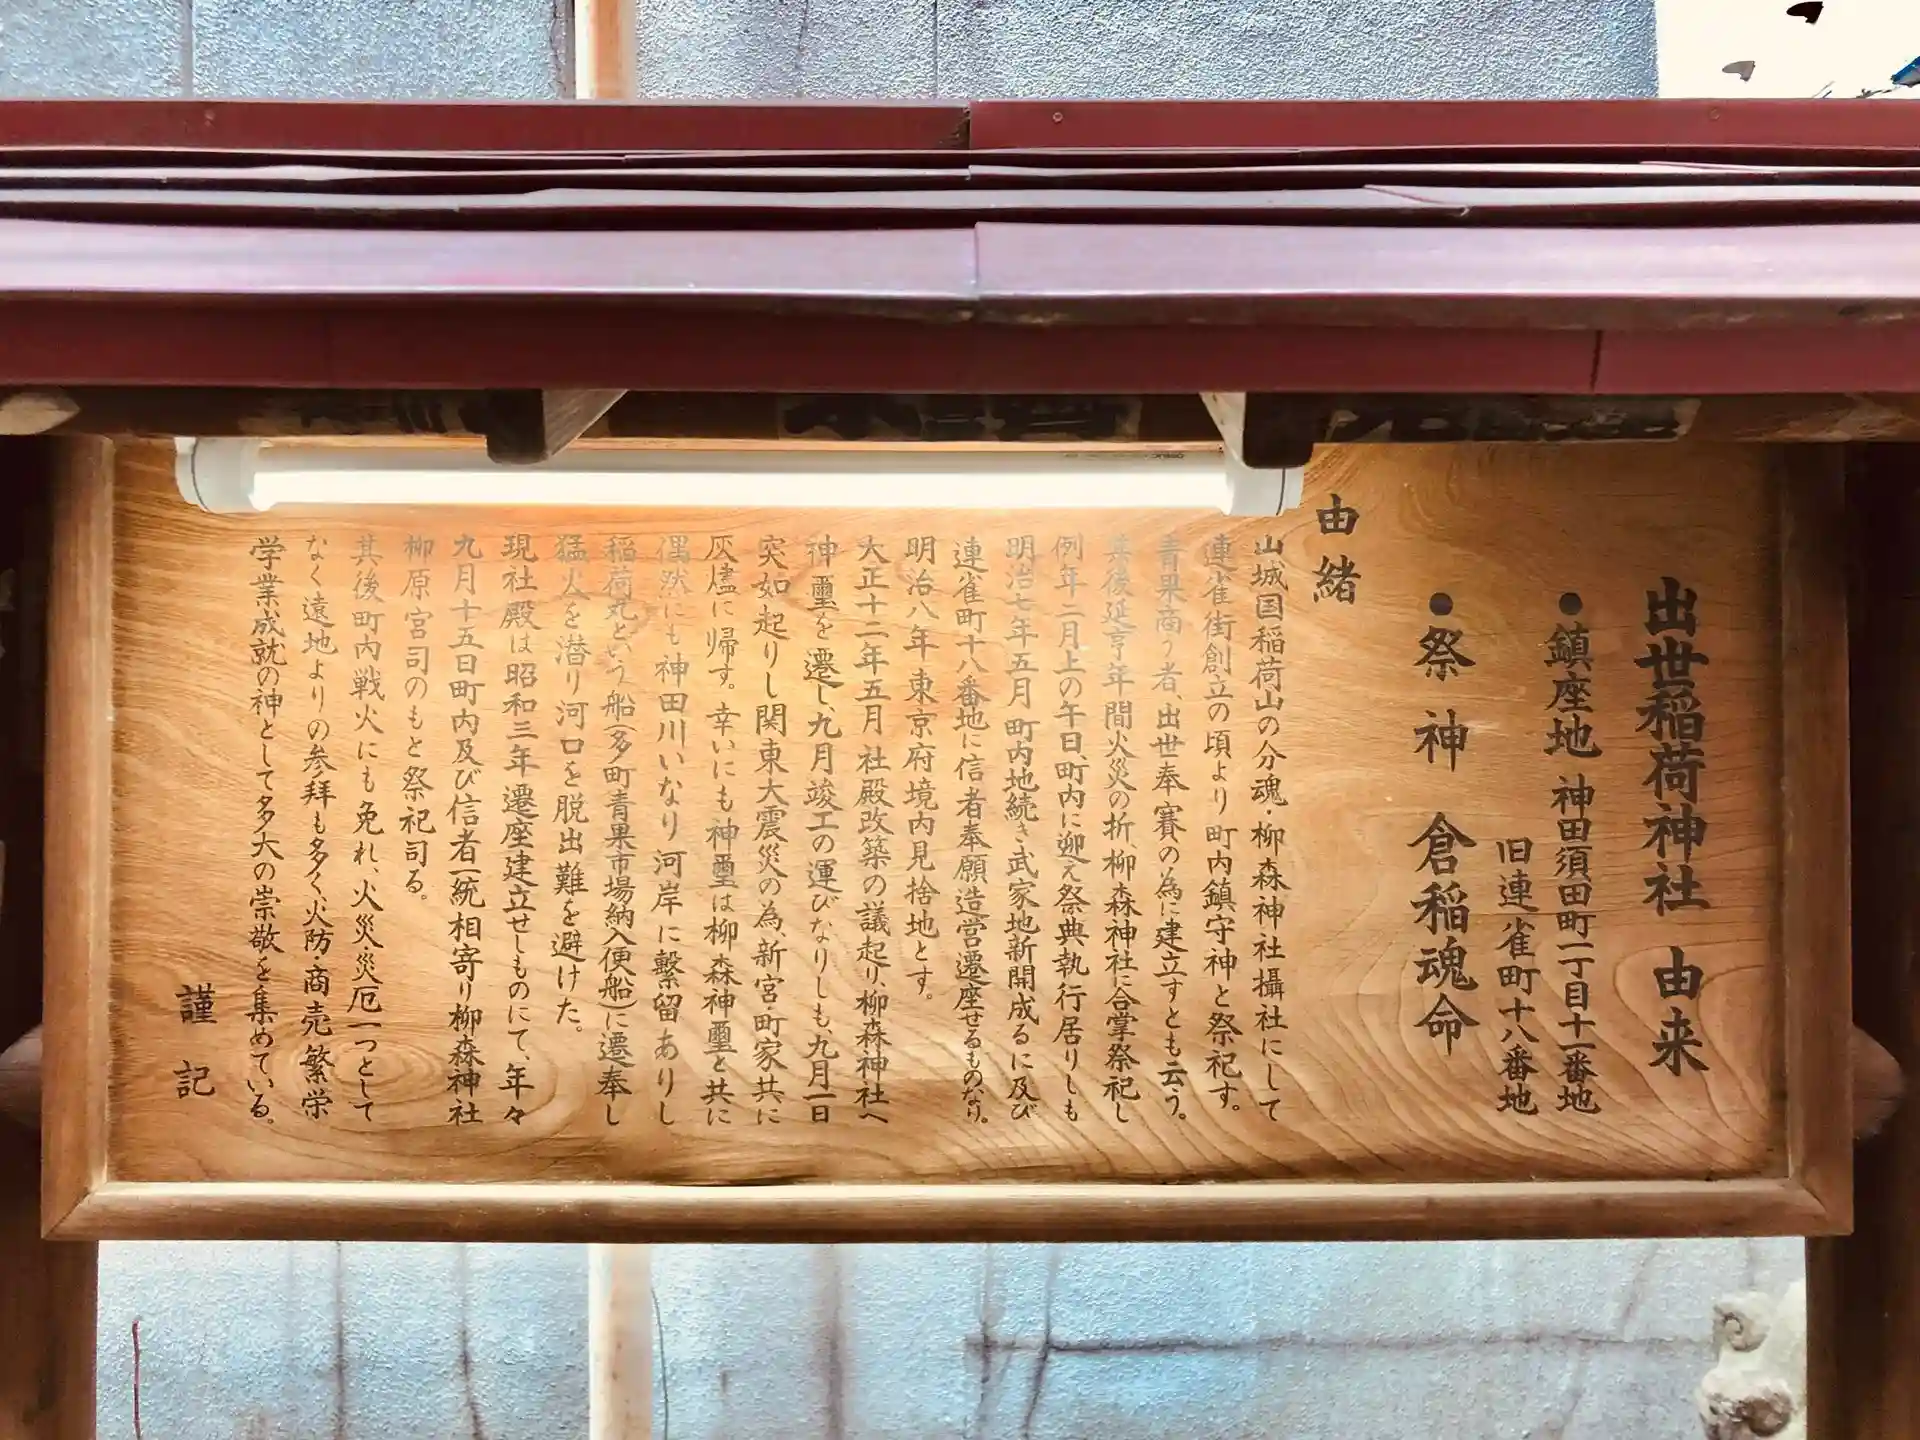 出世稲荷神社 由来
●鎮座地 神田須田町一丁目十一番地
旧連雀町十八番地
●祭神 倉稲魂命
由緒
山城国稲荷山の分魂・柳森神社攝社にして
連雀街創立の頃より町内鎮守神と祭祀す。
青果商う者、出世奉賽の為に建立すとも云う。
其後延亨年間火災の折、柳森神社に合掌祭祀し
例年二月上の午日、町内に迎え祭典執行居りしも
明治七年五月町内地続き武家地新開成るに及び
連雀町十八番地に信者奉願造営遷座せるものなり。
明治八年東京府境内見捨地とす。
大正十二年五月社殿改築の議起り、柳森神社へ
神璽を遷し、九月竣工の運びなりしも、九月一日
突如起りし関東大震災の為、新宮町家共に
灰燼に帰す。幸いにも神璽は柳森神璽と共に
偶然にも神田川いなり河岸に繋留ありし
稲荷丸という船(多町青果市場納入便船)に遷奉し
猛火を潜り河口を脱出難を避けた。
現社殿は昭和三年遷座建立せしものにて、年々
九月十五日町内及び信者一統相寄り柳森神社
柳原宮司のもと祭祀司る。
其後町内戦火にも免れ、火災災厄一つとして
なく遠地よりの参拝も多く、火防・商売繁栄
学業成就の神として多大の崇敬を集めている。
謹記